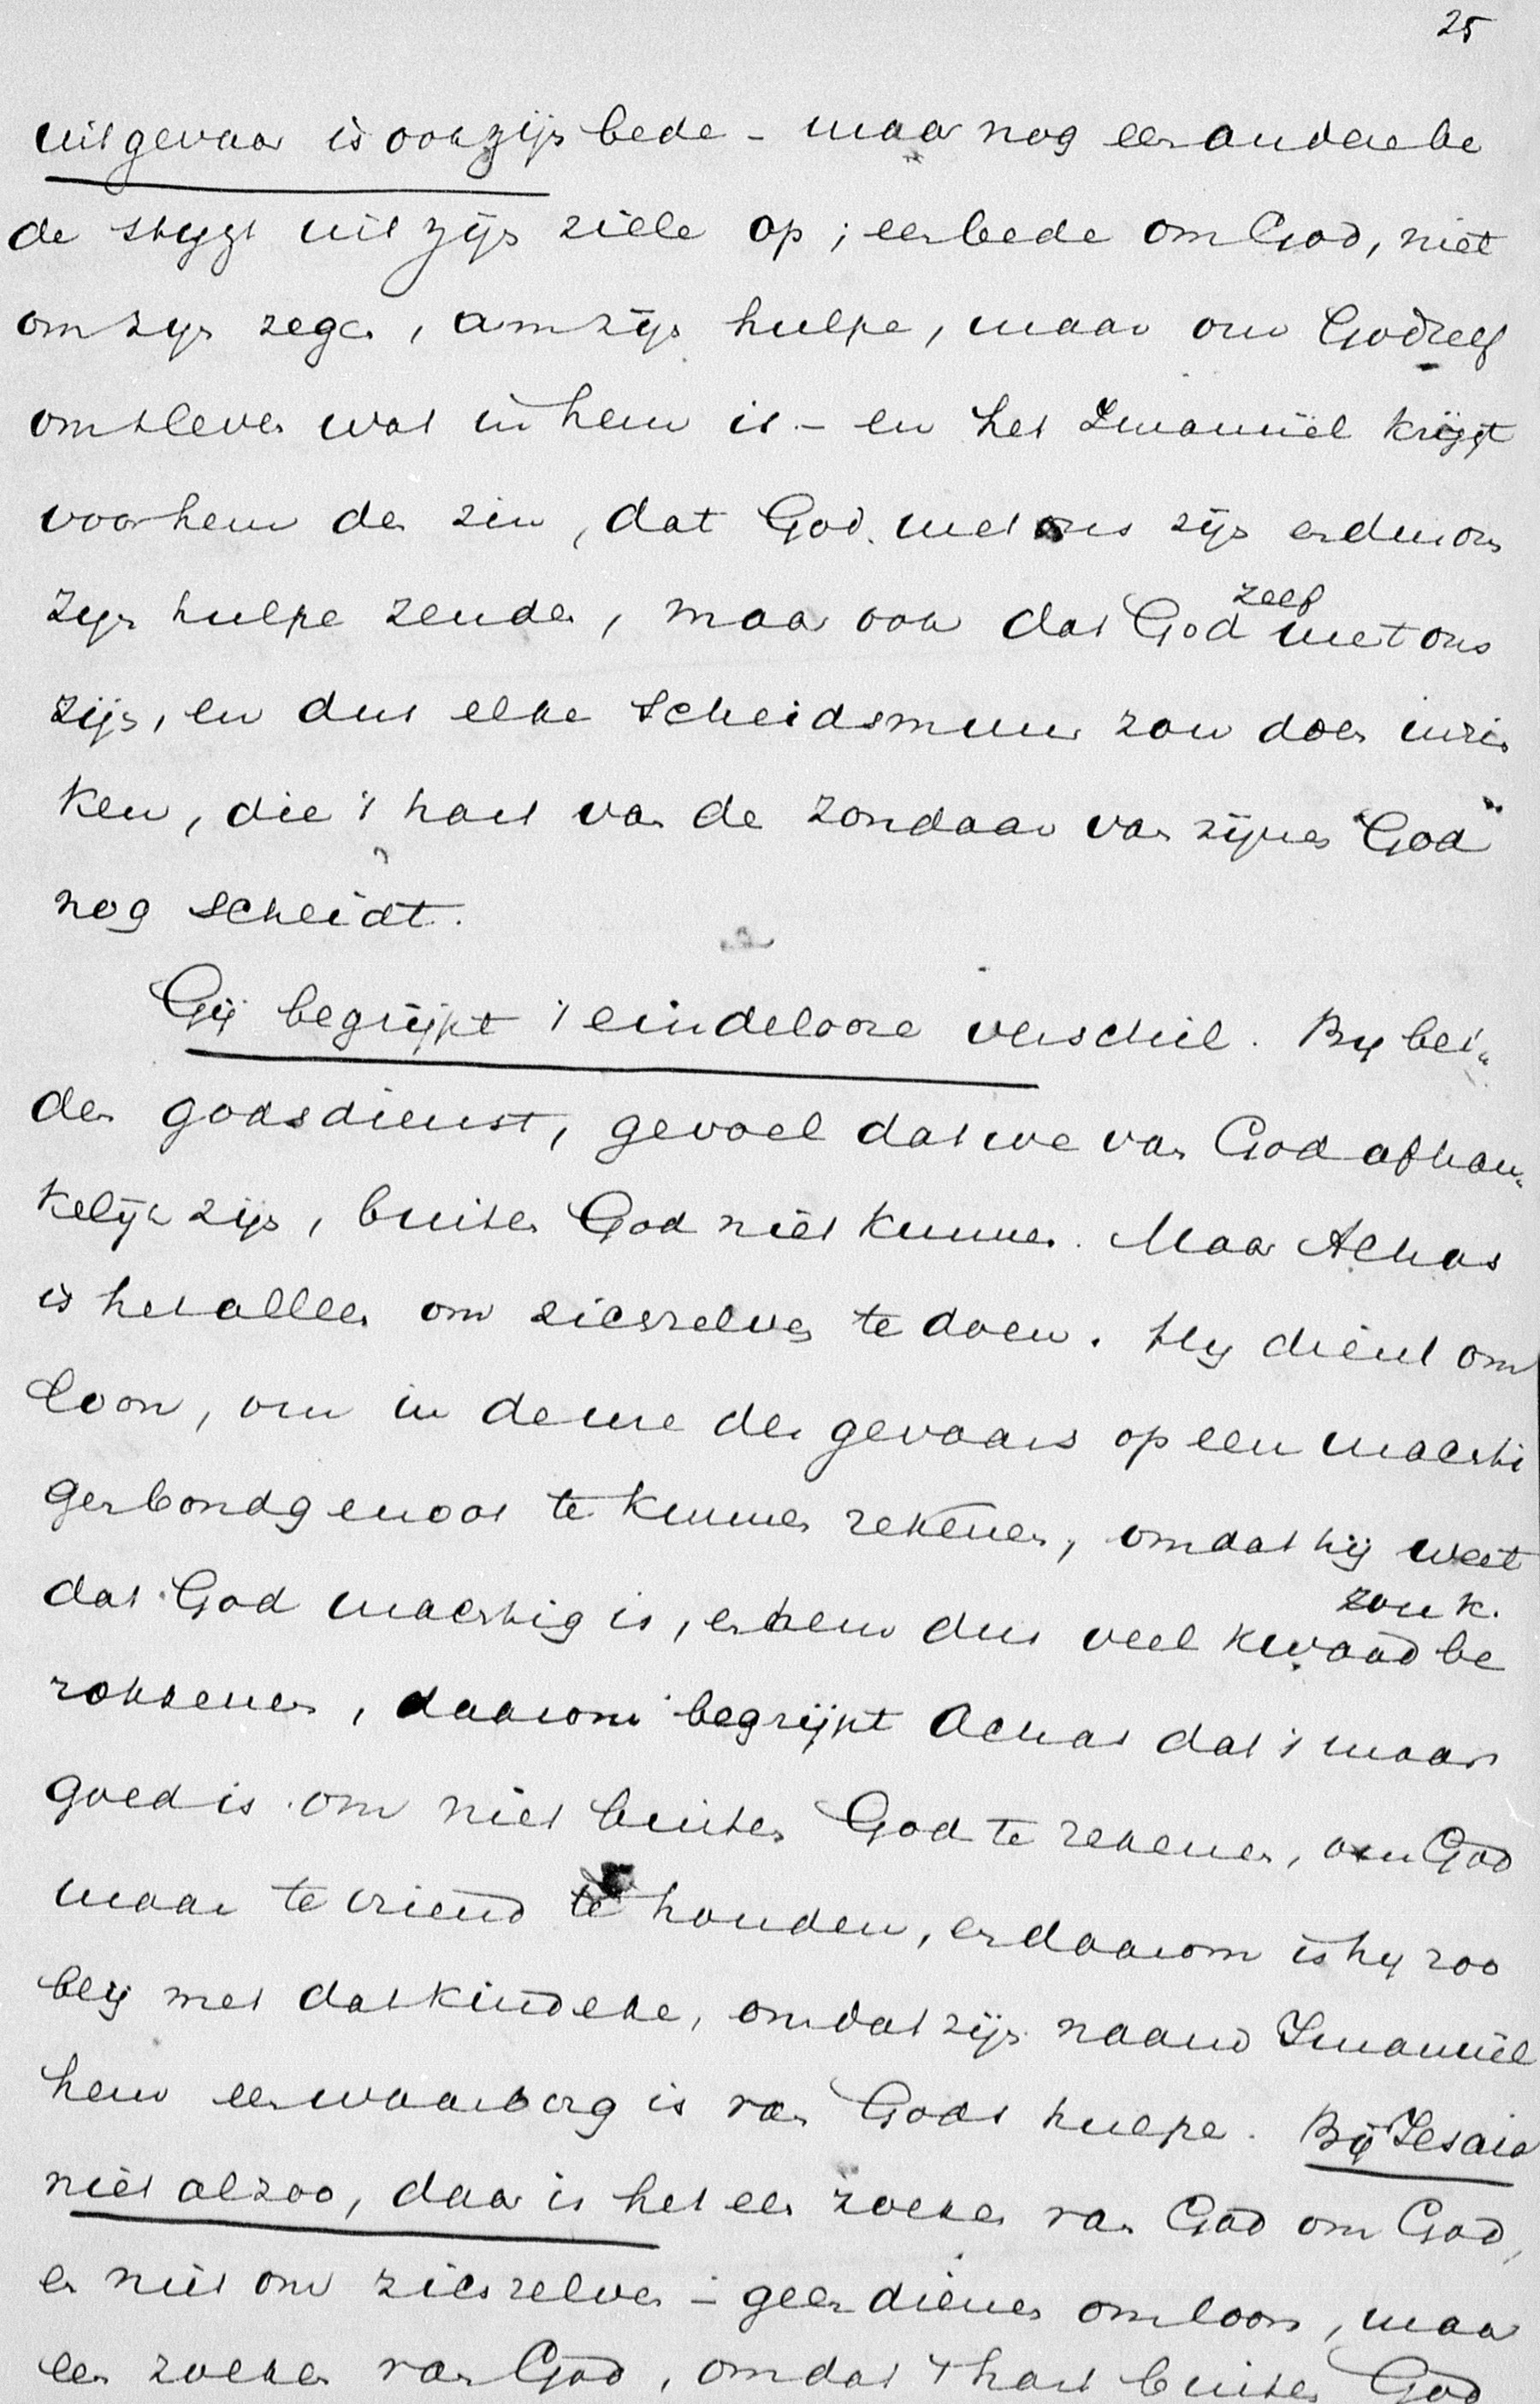 25
uit gevaar is ook zijn bede - maar nog een andere be
de stygt uit zijn ziele op; een bede om God, niet
om zyn zegen, om zijn hulpe, maar om God zelf
om t leven wat in hem is - en het Imanuël krijgt
voor hem den zin, dat God met ons zijn en duron
zyn hulpe zenden, maar ook dat God zelf met ons
zijn, en dus elke scheidsmuur zou doen inzin
ken, die 't hart van de zondaar van zijnen "God"
nog scheidt.
Gij begrijpt 't eindelooze verschil. By bei„
den godsdienst, gevoel dat we van God afhan„
kelijk zijn, buiten God niet kunnen. Maar Achas
is het alleen om zichzelven te doen. Hy dient om
loon, om in de ure des gevaars op een machti
gen bondgenoot te kunnen rekenen, omdat hij weet
dat God machtig is, en hem dus veel kwaad zou k. be
rokkenen, daarom begrijpt Achas dat 't maar
goed is om niet buiten God te rekenen, om God
maar te vriend te houden, en daarom is hy zoo
bly met dat kindeke, omdat zijn naam Imanuël
hem een waarborg is van Gods hulpe. Bij Jesaia
niet alzoo, daar is het een zoeken van God om God,
en niet om zichzelven - geen dienen om loon, maar
een zoeken van God, omdat 't hart buiten God